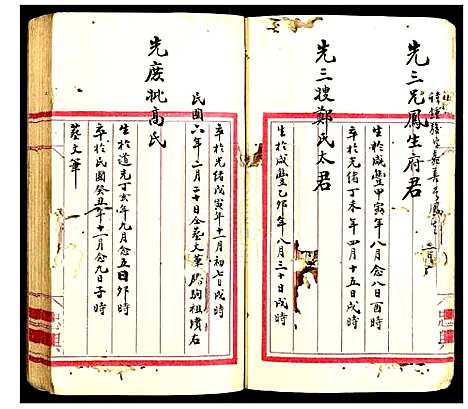 先三兄鳳生府君
生於咸豐甲寅年八月念八日酉時
卒於光緒丁未年四月十五日戌時
先三嫂鄭氏太君
生於咸豐乙卯年八月三十日戌時
卒於光緒戊寅年十一月初七日戌時
民國六年二月二十日合墓文筆 駒祖墳右
先庶妣高氏
生於道光丁亥年九月念五日卯時
卒於民國癸丑年十一月念九日子時
墓文筆
忠興